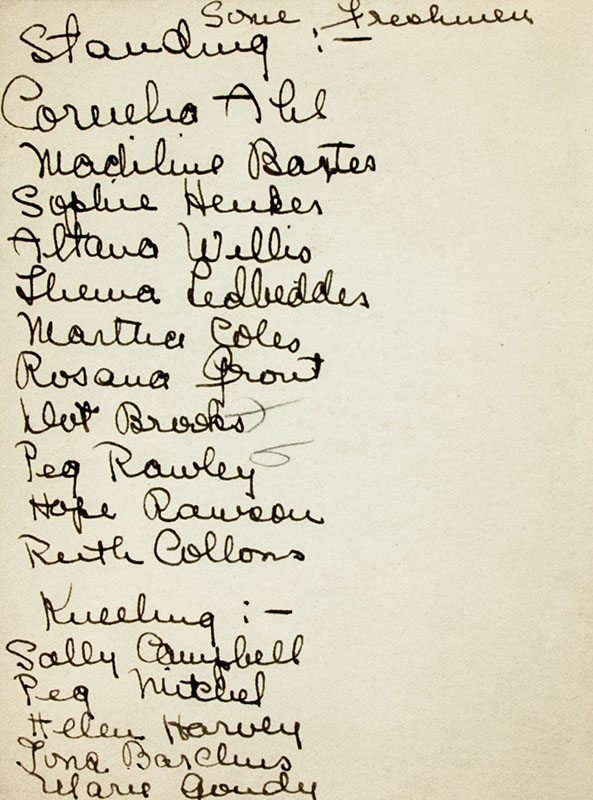 Some Freshmen
Standing :-
Cornelia Ahl
Madiline Baxtes
Sophie Henkes
Altana Willis
Thema Ledbeddes
Martha Coles
Rosana Grout
Dot Brooks
Peg Rawley
Hope Rawson
Ruth Collons
Kneeling :-
Sally Campbell
Peg Mitchel
Helen Harvey
Iona Barclus
Marie Goudy